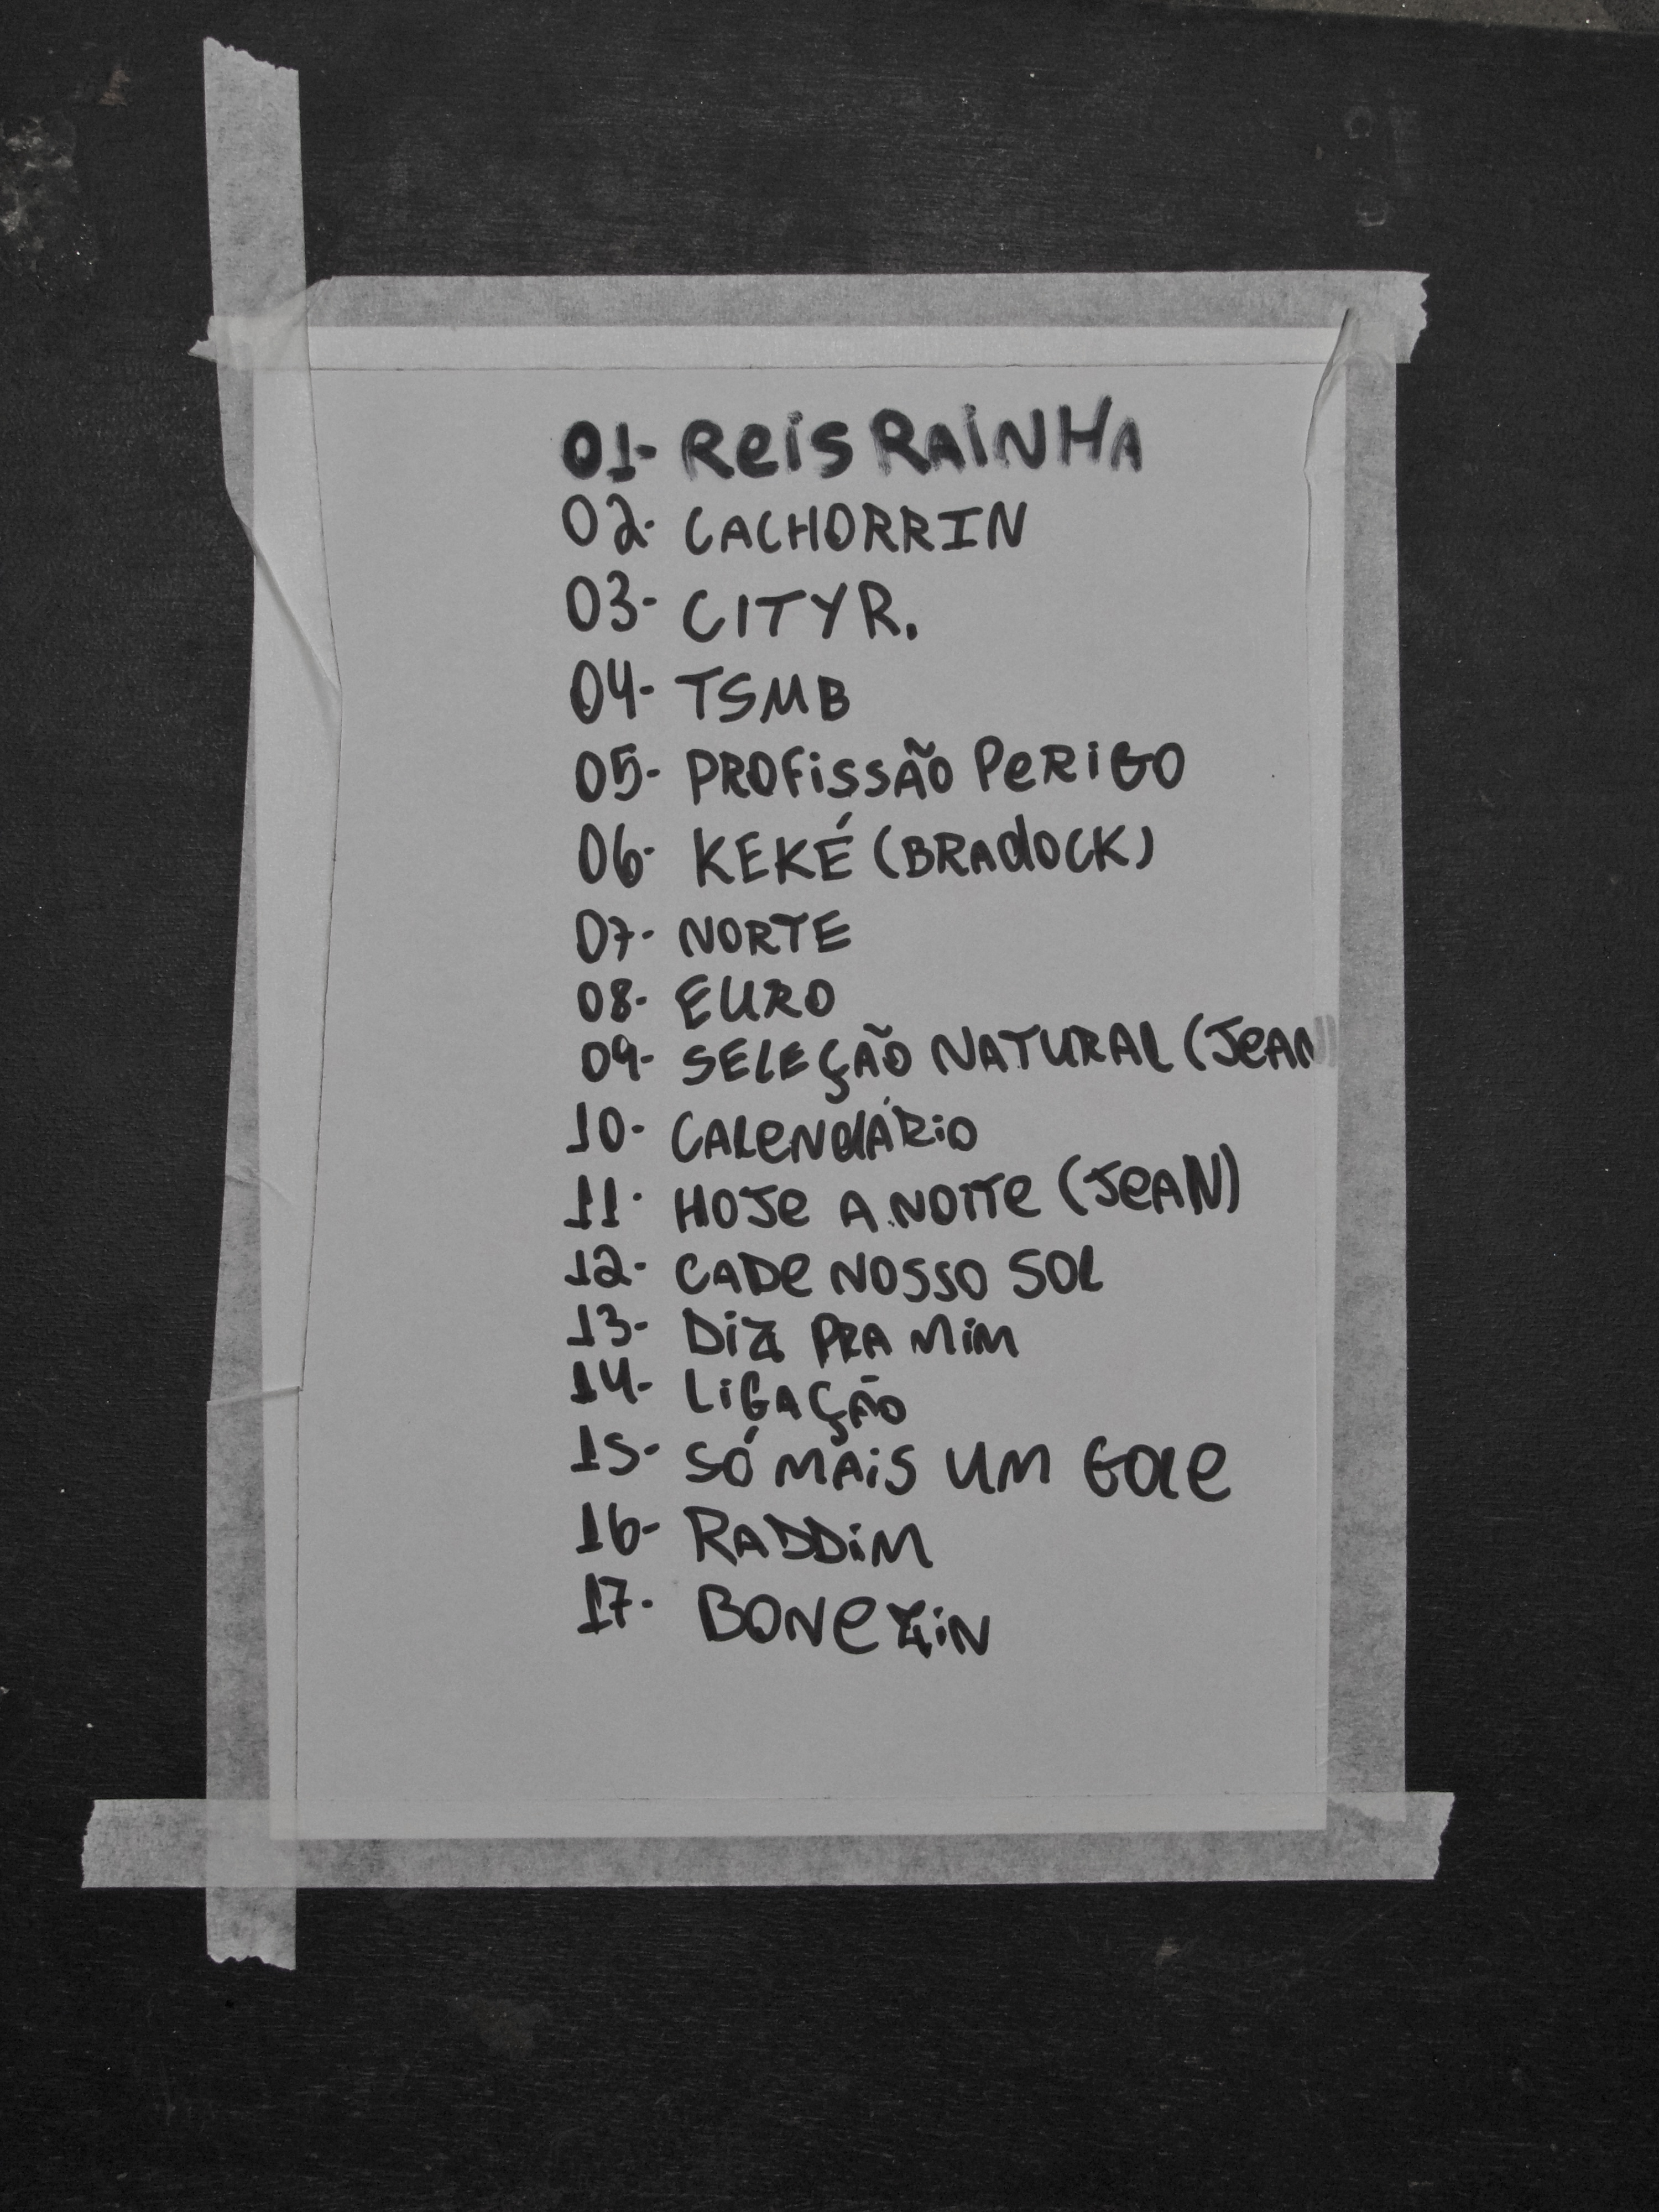 01- Reis RAiNHA
02- CACHORRIN
03- CITY R.
04- TSMB
05- PROFissÃO PeRiGO
06- KEKÉ (BRAdOCK)
07- NORTE
08- EURO
09- SELEÇÃO NATURAL (JeAN)
10- CALeNdÁRiO
11- HOJe A NOiTe (JeAN)
12- CADe NOSSO SOL
13- Diz PRA MiM
14- LiGAÇÃO
15- SÓ MAiS UM GOLe
16- RADDiM
17- BONeziN